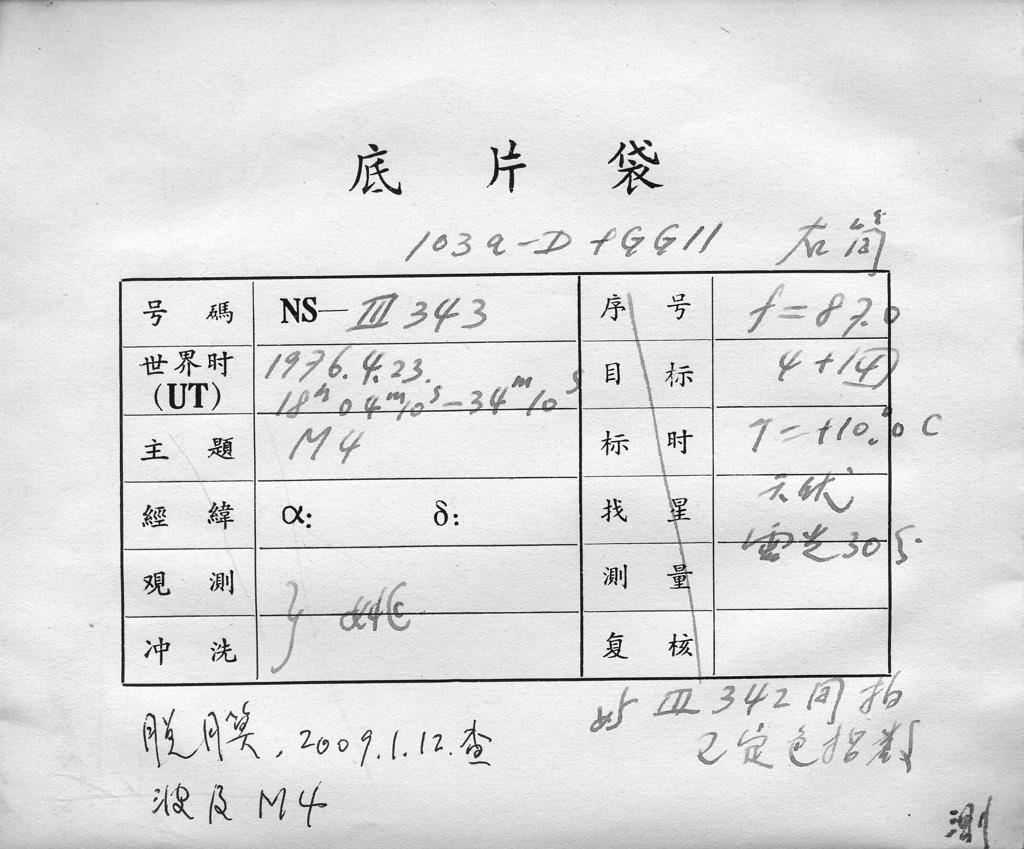 底 片 袋
103a-D+GG11 右筒
号 碼 NS—III 343 序 号 f=87.0
世界时 (UT) 1976.4.23. 18h04m10s-34m10s 目 标
主 題 M4 标 时 T=+10.°0 C
經 緯 α: δ: 找 星
观 测 测 量 露光30
冲 洗 复 核
与 III 342 同拍
已定色指数
脱膜,2009.1.12.查
波及 M4
测